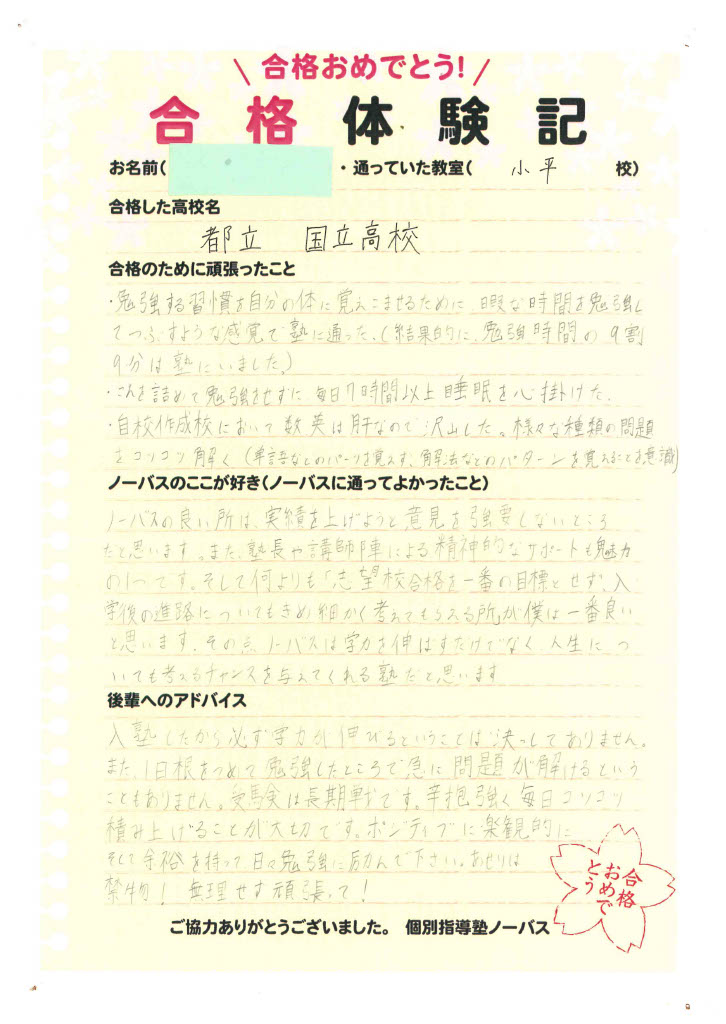 合格おめでとう!
合格体験記
お名前( ・通っていた教室( 小平 校)
合格した高校名
都立 国立高校
合格のために頑張ったこと
・勉強する習慣を自分の体に覚えこませるために、暇な時間を勉強し
てつぶすような感覚で塾に通った。(結果的に、勉強時間の9割
9分は塾にいました。)
・こんを詰めて勉強をせずに、毎日7時間以上睡眠を心掛けた。
・自校作成校において数英は肝なので沢山した。様々な種類の問題
をコツコツ解く (単語などのパーツを覚えず、解法などのパターンを覚えることを意識)
ノーバスのここが好き(ノーバスに通ってよかったこと)
ノーバスの良い所は、実績を上げようと意見を強要しないところ
だと思います。また、塾長や講師陣による精神的なサポートも魅力
の1つです。そして何よりも「志望校合格を一番の目標とせず、入
学後の進路についてもきめ細かく考えてもらえる所が僕は一番良い
と思います。その点ノーバスは学力を伸ばすだけでなく、人生につ
いても考えるチャンスを与えてくれる塾だと思います
後輩へのアドバイス
入塾したから必ず学力が伸びるということは決してありません。
また、1日根をつめて勉強したところで急に問題が解けるという
こともありません。受験は長期戦です。辛抱強く毎日コツコツ
積み上げることが大切です。ポジティブに楽観的に
そして余裕を持って日々勉強に励んで下さい。あせりは
禁物! 無理せず頑張って!
合格
おめで
とう
ご協力ありがとうございました。 個別指導塾ノーバス